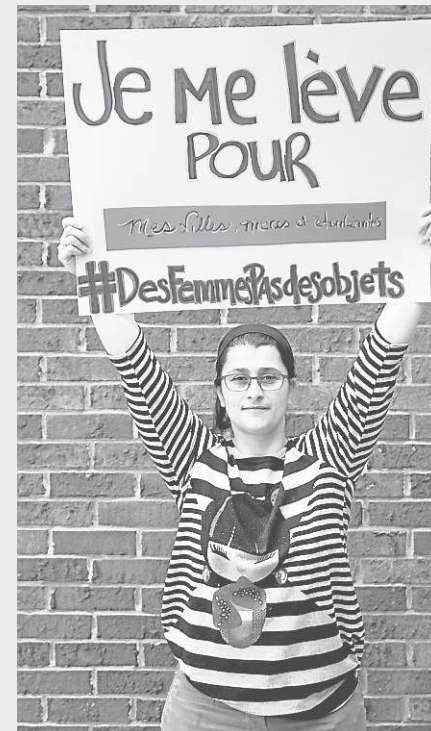 Je Me lève
POUR
Mes filles, nieces et étudiantes
#DesFemmesPasdesobjets